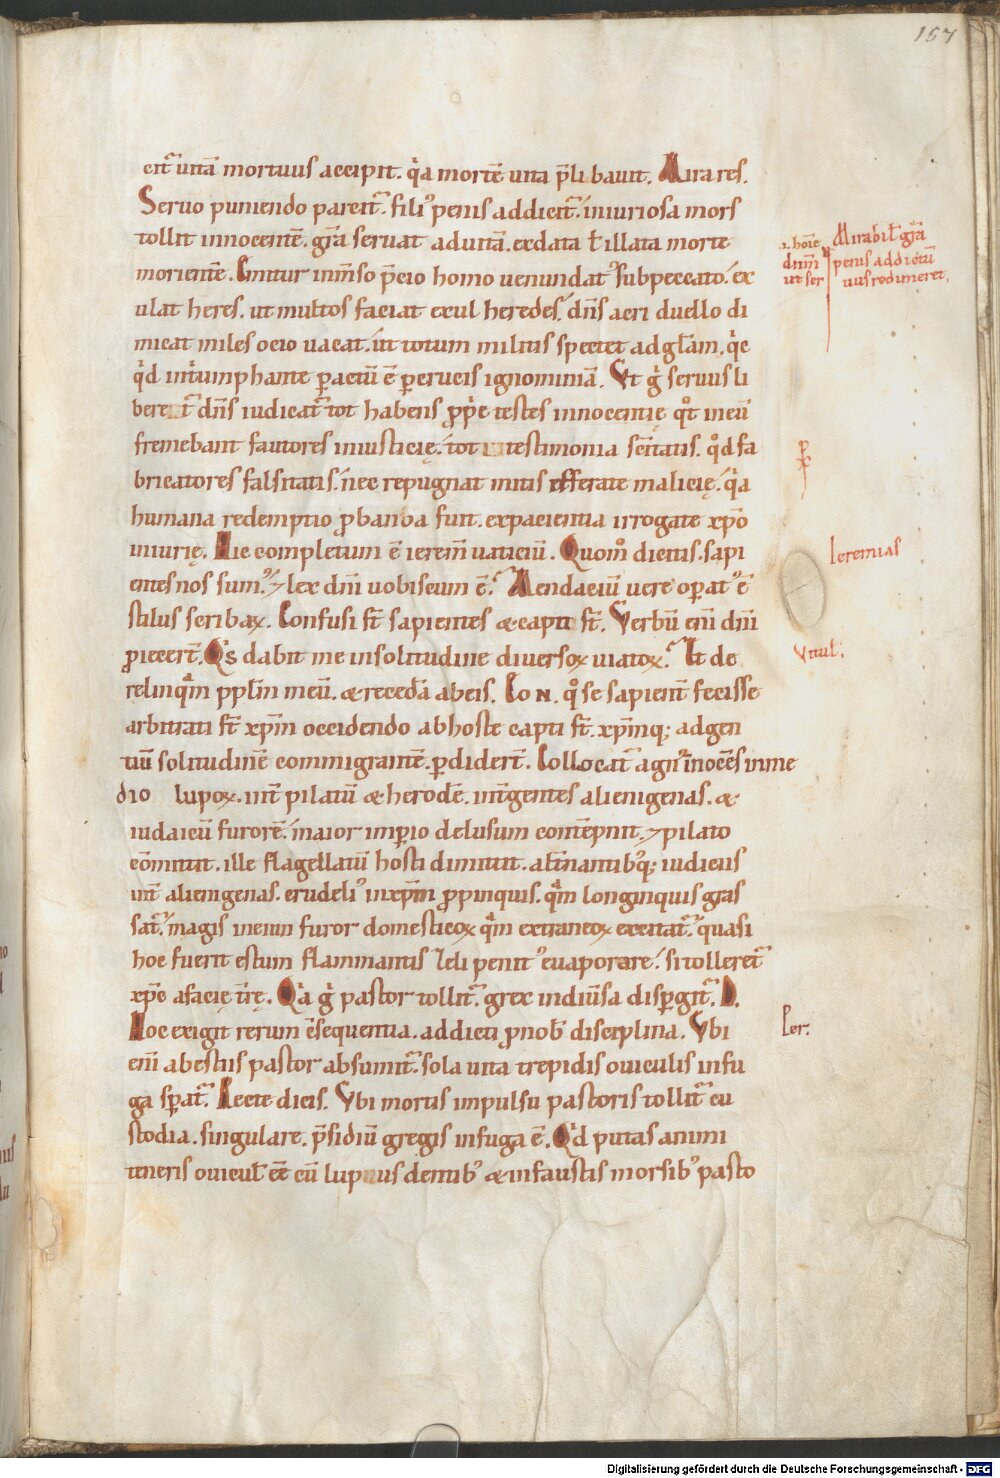 157
cit᷑ uitā mortuus accipit. q̇a mortē uita p̄libauit. Mira res.
Seruo puniendo parcit᷑. fili᾽ penis addicit᷑. iniuriosa mors
tollit innocentē. gr̄a seruat ad uitā. ex data ł illata morte
morientē. Emitur inmso p̄cio homo uenundat᾽ sub peccato. ex
ulat heres. ut multos faciat exul heredes. dn̄s acri duello di
micat miles ocio uacat. ut totum militis spectet ad gl̄am. q̇c
q̇d int᷑iumphante ꝑactū ē ꝑ crucis ignominiā. Vt ġ seruus li
bere t᷑ dn̄s iudicat᷑ tot habens ꝓp̄e testes innocentię qͦt in eū
fremebant fautores iniusticię. tot testimonia sc̄itatis. qͦd fa
bricatores falsitatis. nec repugnat mitis efferate malicię. q̇a
humana redemptio ꝓbanba fuit. ex pacientia irrogate xp̄o
iniurię. Hic completum ē ierem̄ uaticiū. Quomͦ dicitis. sapi
entes nos sum᾽. ⁊ lex dn̄i uobiscum ē. Mendaciū uere opat᾽ ē
stilus scribaꝝ. Confusi st̄ sapientes & capti st̄. Verbū eni dn̄i
ꝓiecert̄. Qs dabit me in solitudine diuersoꝝ uiatoꝝ. Et de
relinq̄m ppl̄m meū. & recedā ab eis. Co N. qͦ se sapient̄ fecisse
arbitrati st̄ xp̄m occidendo ab hoste capti st̄. xp̄mq; ad gen
tiū solitudinē commigrantē. ꝑdidert̄. Collocat᷑ agn᾽ inocēs in me
dio lupoꝝ. int̄ pilatū & herodē. int̄ gentes alienigenas. &
iudaicū furorē. maior impio delusum contēpnit. ⁊ pilato
cōmittit. ille flagellatū hosti dimittit. at̄inantibq; iudicus
int̄ alienigenas. crudeli᾽ in xp̄m ꝓpinquis. q̄m longinquis gras
sat᷑. magis in eum furor domesticoꝝ q̄m extraneoꝝ excitat᷑. quasi
hoc fuerit estum flammantis leli penit᾽ euaporare. si tolleret᷑
xp̄c a facię t̄rę. Q̇a ġ pastor tollit᷑. grex indiuisa disꝑgit᷑. D.
Hoc exigit rerum c̄sequentia. addicti ꝓ nob disciplina. Vbi
eni ab estiis pastor absumit᷑. sola uita trepidis ouiculis in fu
ga sꝑat᷑. Recte dicis. Vbi mortis impulsu pastoris tollit᷑ cu
stodia. singulare. p̄sidiū gregis in fuga ē. Q̇d putas animi
teneris ouicul ēē cū lupinus dentib᾽ & infaustis morsib᾽ pasto
.i. hoīe
dnm̄
ut ser
Mirabil gr̄a
penis addictū
uus redimeret.
Ieremias
Vitul.
Per.
Digitalisierung gefördert durch die Deutsche Forschungsgemeinschaft - DFG